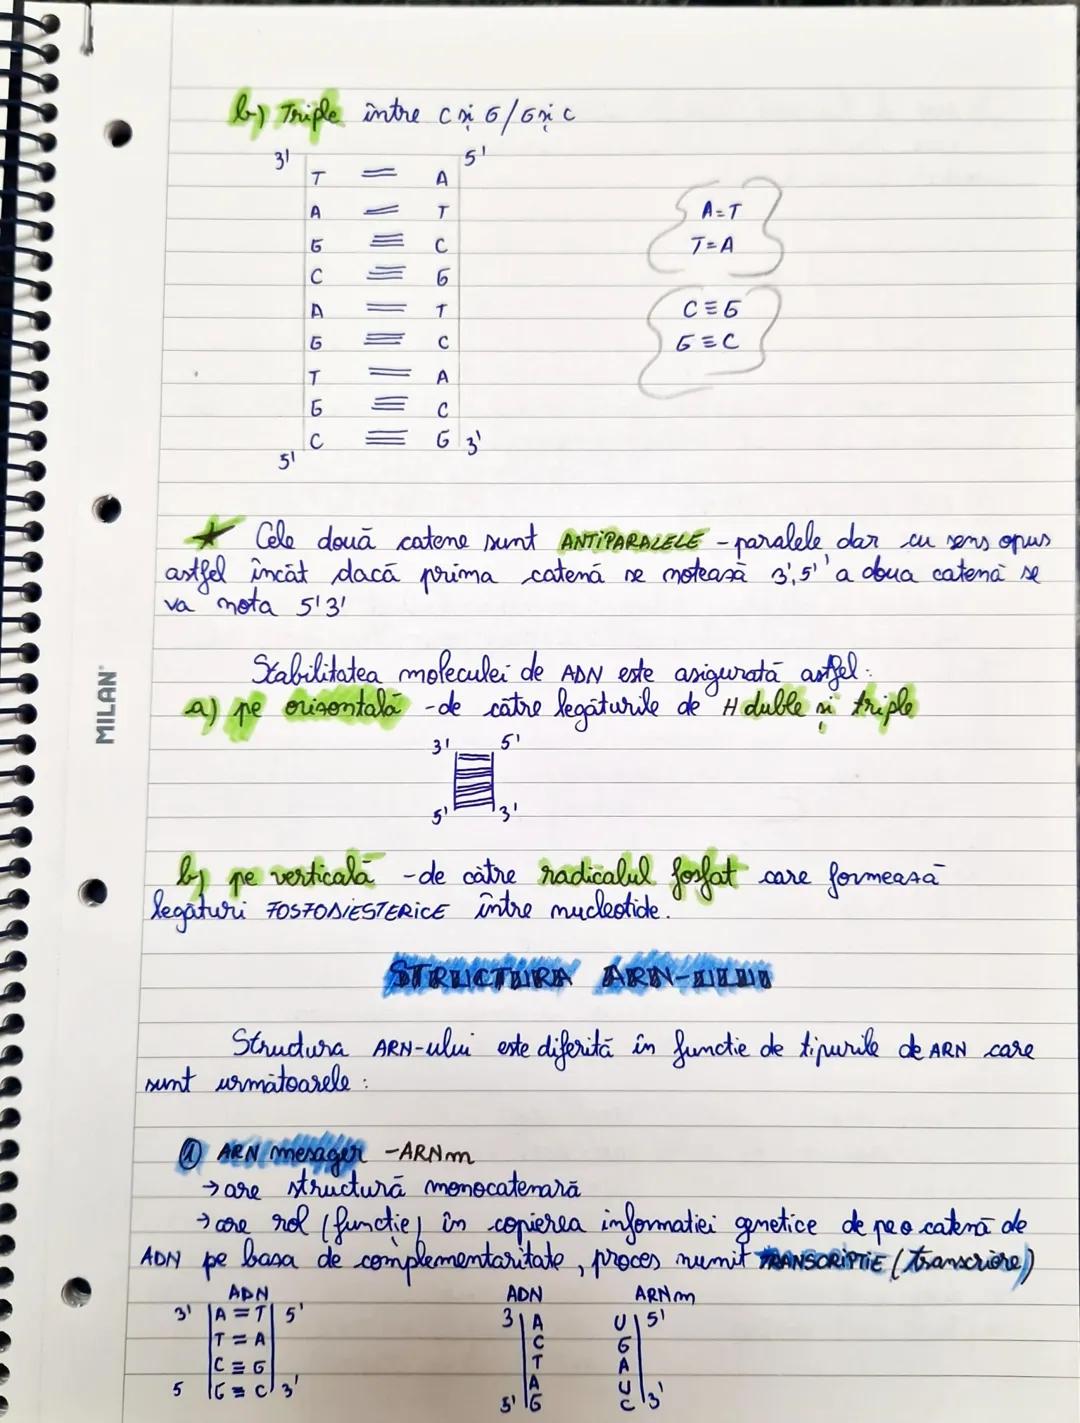 b) Triple între C și G/G și C
3' 5'
T = A
A = T
G ≡ C
C ≡ G
A = T
G ≡ C
T = A
G ≡ C
C ≡ G 3'
5'
A=T
T=A
C≡G
G≡C
★ Cele două catene sunt ANTIPARALELE - paralele dar cu sens opus
astfel încât dacă prima catenă se notează 3',5' a doua catenă se
va nota 5'3'
Stabilitatea moleculei de ADN este asigurată astfel:
a) pe orizontală - de către legăturile de H duble și triple
3' 5'
5' 3'
b) pe verticală - de către radicalul fosfat care formează
legături FOSFODIESTERICE între nucleotide.
STRUCTURA ARN-ULUI
Structura ARN-ului este diferită în functie de tipurile de ARN care
sunt următoarele:
① ARN mesager - ARNm
→ are structură monocatenară
→ are rol (functie) în copierea informatiei genetice de pe o catenă de
ADN pe baza de complementaritate, proces numit TRANSCRIPTIE (transcriere)
ADN
3' A = T 5'
T = A
C ≡ G
5 G ≡ C 3'
ADN ARNm
3 A U 5'
C G
T A
A U
5' G C 3'
MILAN